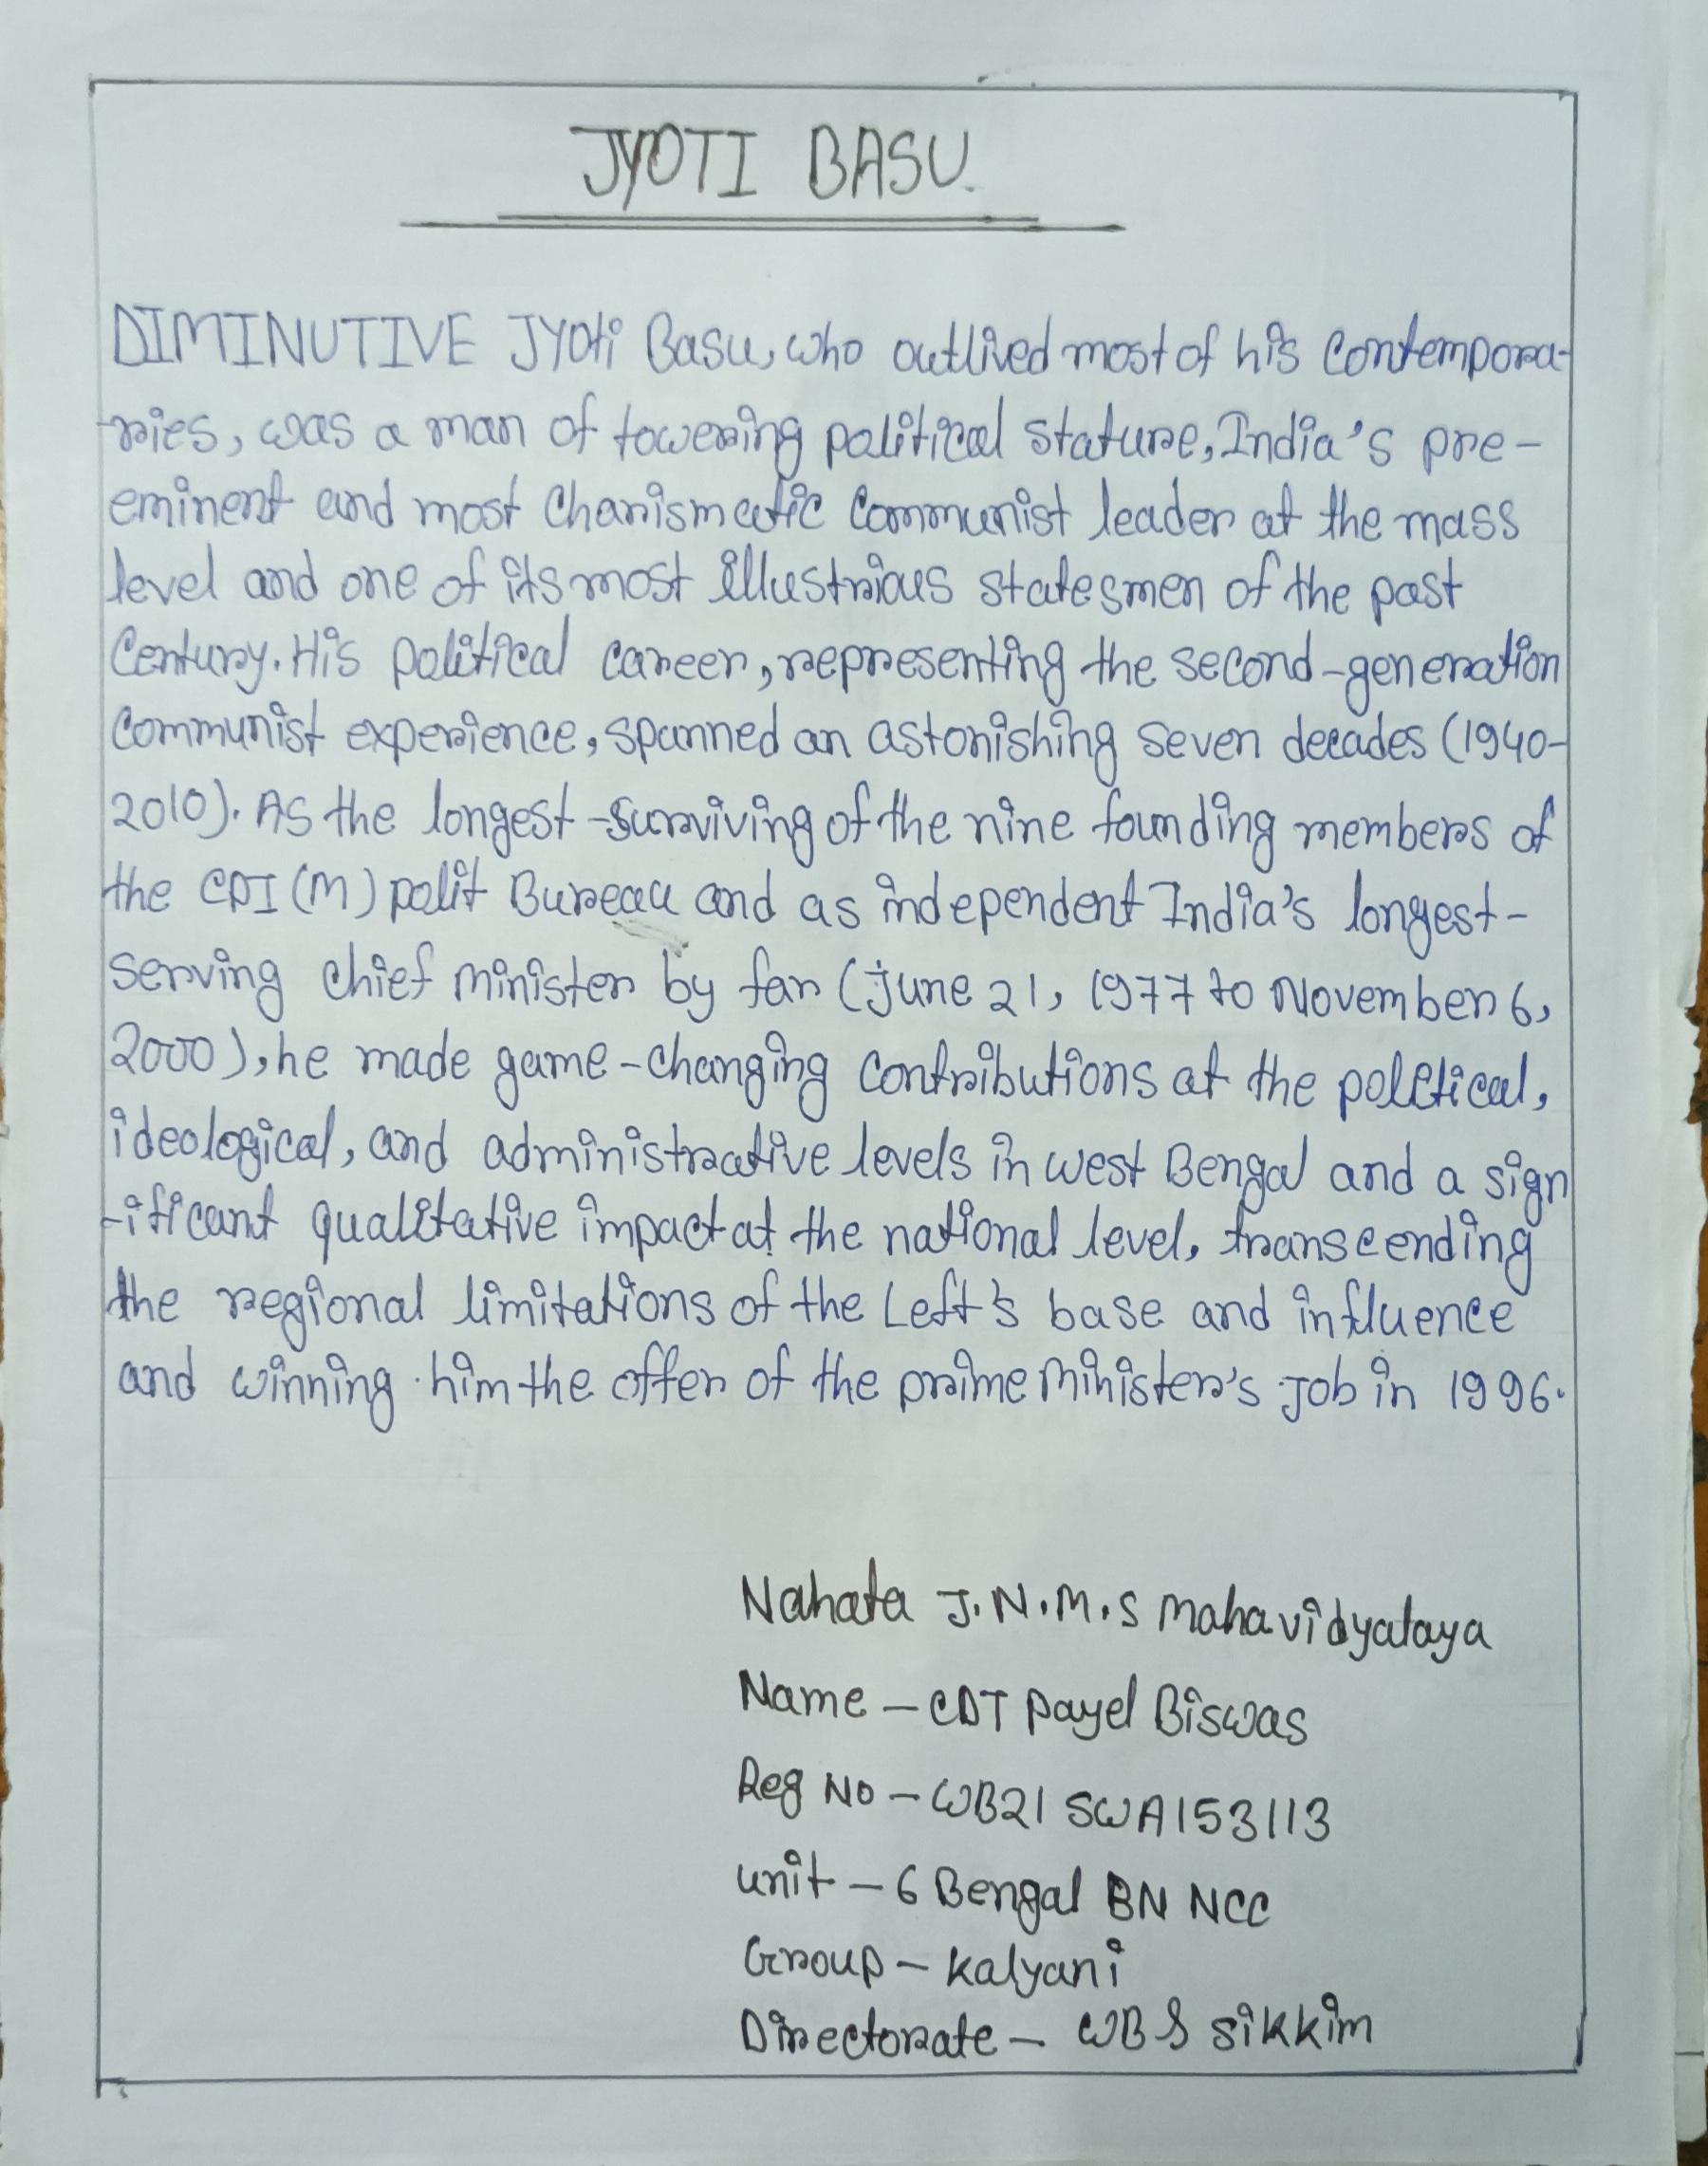 JYOTI BASU.
DIMINUTIVE Jyoti Basu, who outlived most of his contempora-
ries, was a man of towering political stature, India's pre-
eminent and most charismatic communist leader at the mass
level and one of its most illustrious statesmen of the past
century. His political career, representing the second-generation
communist experience, spanned an astonishing seven decades (1940-
2010). As the longest-surviving of the nine founding members of
the CPI (M) polit Bureau and as independent India's longest-
serving chief minister by far (june 21, 1977 to November 6,
2000), he made game-changing contributions at the political,
ideological, and administrative levels in west Bengal and a sign
-ificant qualitative impact at the national level, transcending
the regional limitations of the Left's base and influence
and winning him the offer of the prime Minister's job in 1996.
Nahata J.N.M.S Mahavidyalaya
Name - CDT Payel Biswas
Reg No - WB21 SWA153113
unit - 6 Bengal BN NCC
Group - Kalyani
Directorate - WB & Sikkim